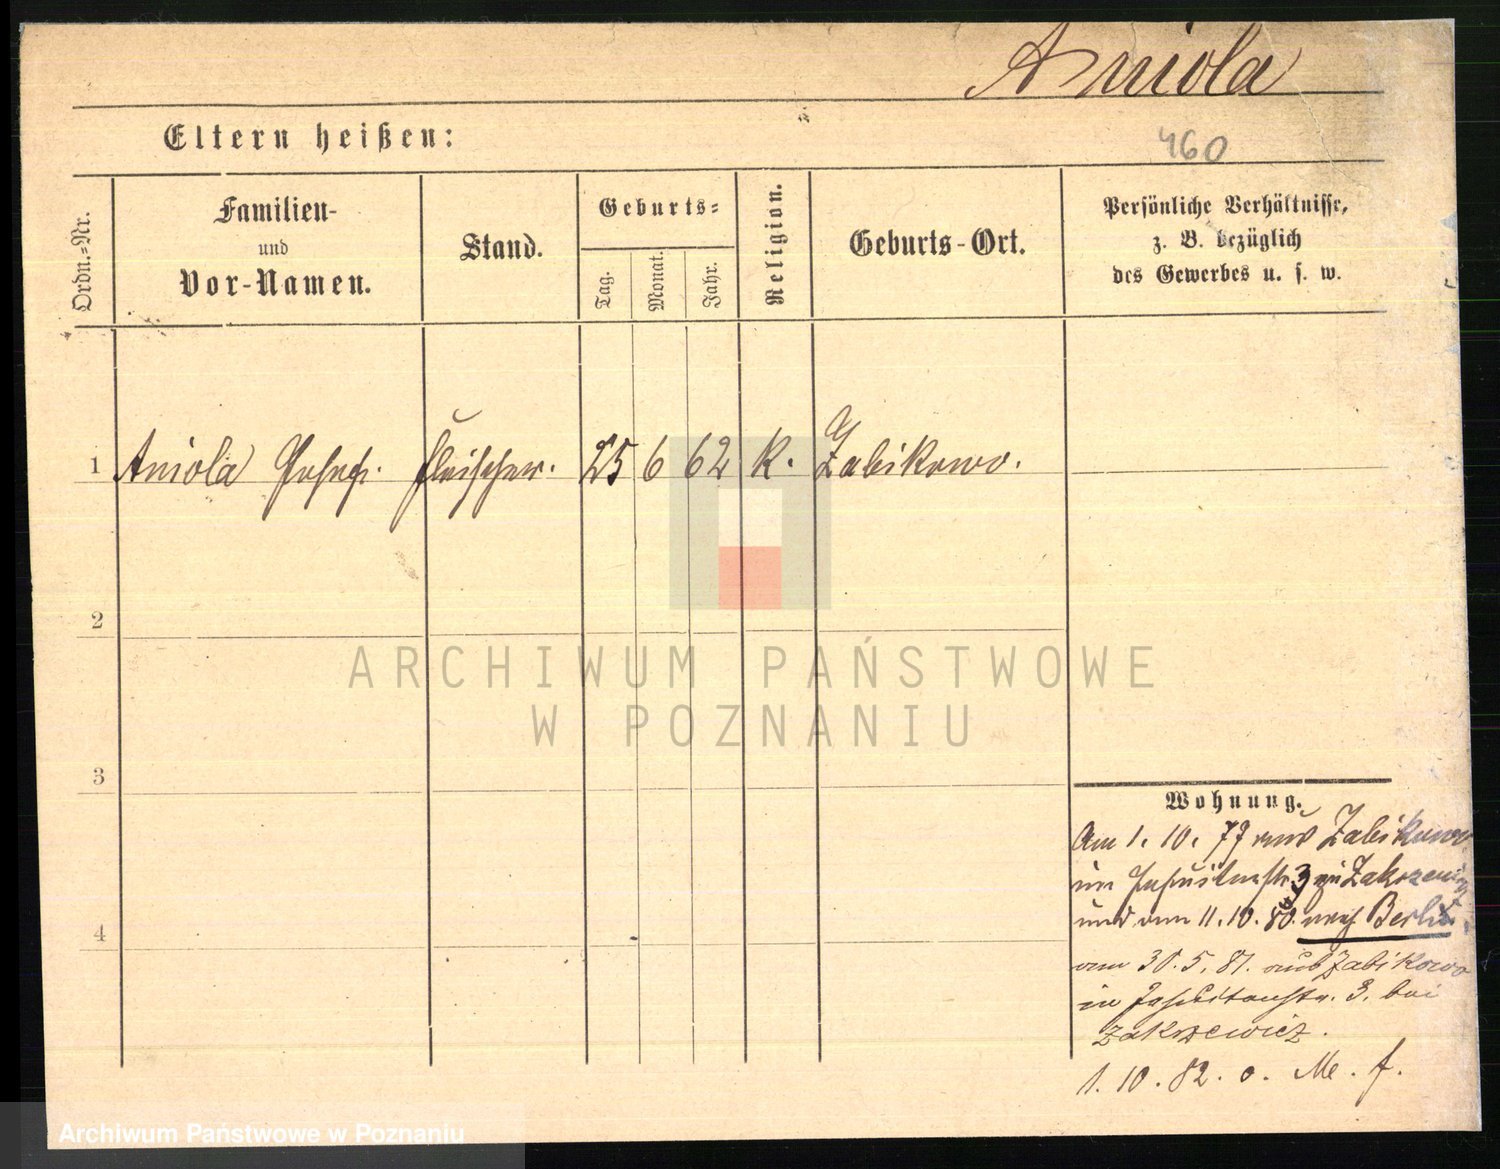 Aniola
460
Eltern heißen:
Ordn.-Nr.
Familien-
und
Vor-Namen.
Stand.
Geburts-
Tag.
Monat.
Jahr.
Religion.
Geburts-Ort.
Persönliche Verhältnisse,
z. B. bezüglich
des Gewerbes u. s. w.
1 Aniola Josef. Fleischer. 25 6 62 k. Zabikowo.
2
3
4
Wohnung.
Am 1. 10. 77 aus Zabikowo
in Jesuitenstr 3 zu
und am 11. 10. 80. nach Berlin.
am 30. 5. 81. aus Zabikowo
in Jesuitenstr. 3. bei
Zakrzewicz.
1. 10. 82. o. M. f.
ARCHIWUM PAŃSTWOWE
W POZNANIU
Archiwum Państwowe w Poznaniu